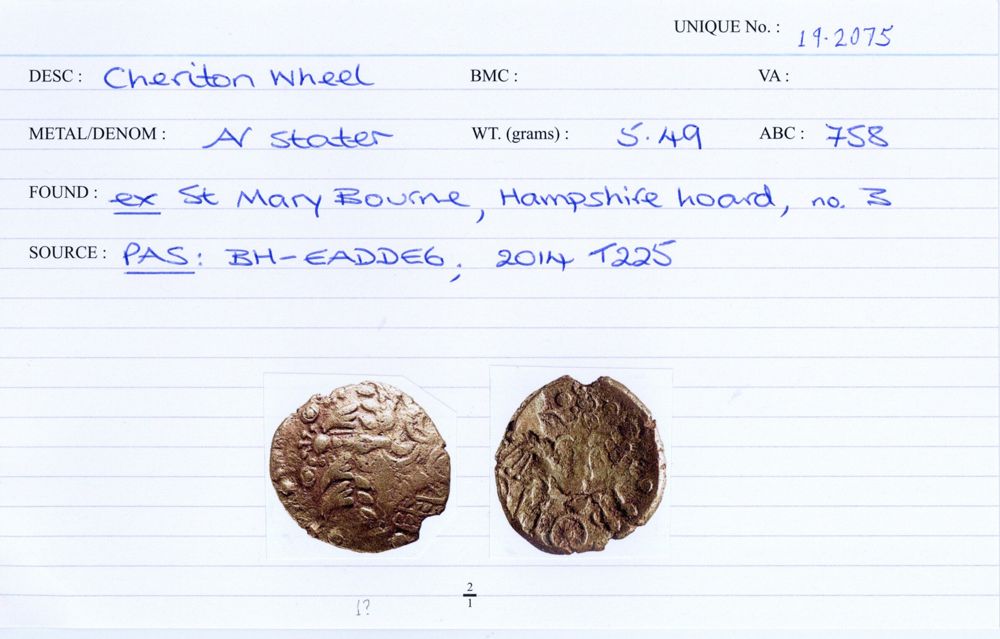 UNIQUE No. : 19.2075
DESC : Cheriton Wheel BMC : VA :
METAL/DENOM : AV stater WT. (grams) : 5.49 ABC : 758
FOUND : ex St Mary Bourne, Hampshire hoard, no. 3
SOURCE : PAS: BH-EADDE6; 2014 T225
2
1? 1